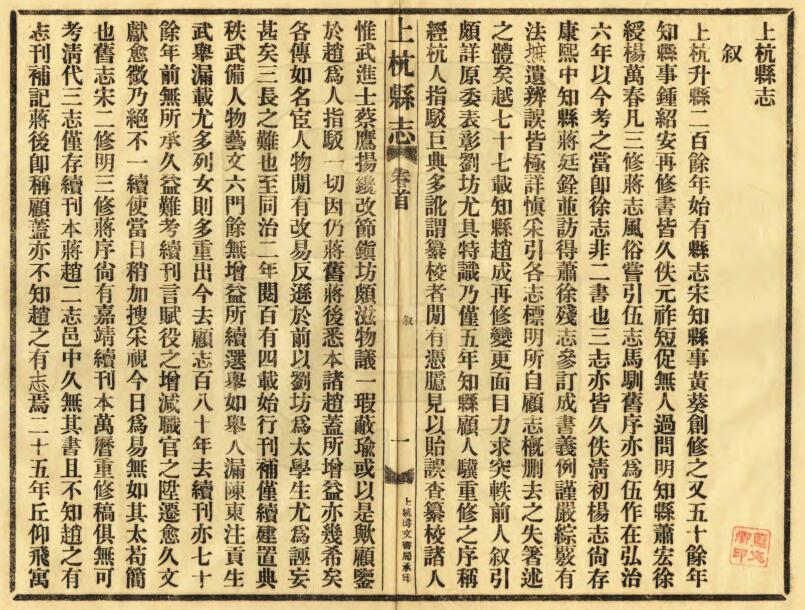 上杭縣志
叙
上杭升縣二百餘年始有縣志宋知縣事黃葵創修之又五十餘年
知縣事鍾紹安再修書皆久佚元祚短促無人過問明知縣蕭宏徐
綬楊萬春凡三修蔣志風俗嘗引伍志馬馴舊序亦爲伍作在弘治
六年以今考之當卽徐志非二書也三志亦皆久佚清初楊志尙存
康熙中知縣蔣廷銓並訪得蕭徐殘志參訂成書義例謹嚴綜覈有
法摭遺辨誤皆極詳愼采引各志標明所自顧志槪删去之失箸述
之體矣越七十七載知縣趙成再修變更面目力求突軼前人叙引
頗詳原委表彰劉坊尤具特識乃僅五年知縣顧人驥重修之序稱
經杭人指駁巨典多訛謂纂校者閒有憑臆見以貽誤查纂校諸人
上杭縣志
卷首
叙
一
上杭啍文書局承印
惟武進士蔡鷹揚鑱改節鎭坊頗滋物議一瑕蔽瑜或以是歟顧鑒
於趙爲人指駁一切因仍蔣舊蔣後悉本諸趙蓋所增益亦幾希矣
各傳如名宦人物閒有改易反遜於前以劉坊爲太學生尤爲誣妄
甚矣三長之難也至同治二年閱百有四載始行刊補僅續建置典
秩武備人物藝文六門餘無增益所續選舉如舉人漏陳東注貢生
武舉漏載尤多列女則多重出今去顧志百八十年去續刊亦七十
餘年前無所承久益難考續刊言賦役之增減職官之陞遷愈久文
獻愈徵乃絕不一續使當日稍加搜采視今日爲易無如其太苟簡
也舊志宋二修明三修蔣序尙有嘉靖續刊本萬曆重修稿俱無可
考清代三志僅存續刊本蔣趙二志邑中久無其書且不知趙之有
志刊補記蔣後卽稱顧蓋亦不知趙之有志焉二十五年丘仰飛寓